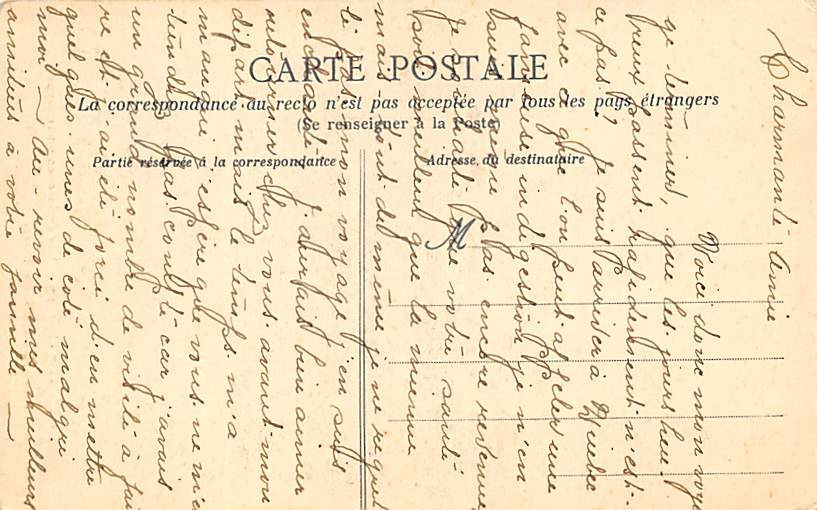 CARTE POSTALE
La correspondance au recto n'est pas acceptée par tous les pays étrangers
(Se renseigner à la Poste)
Partie réservée à la correspondance
Adresse du destinataire
M
Charmante Amie
Voici donc mon voya
ge terminé, que les jours heu-
reux passent rapidement n'est-
ce pas? Je suis arrivé à Québec
avec ce que l'on peut appeler une
fameuse indigestion je n'en
suis même pas encore revenu
Je souhaite que votre santé
soit meilleure que la mienne
mais tout de même je ne regret
te pas mon voyage j'en suis
enchanté. J'aurais bien aimer
retourner chez vous avant mon
départ mais le temps m'a
manqué j'espère que vous ne m'en
tiendrez pas compte car j'avais
un grand nombre de visite à fai
re et j'ai été forcé d'en mettre
quelques unes de coté malgré
moi — Au-revoir mes meilleurs
amitiés à votre famille —